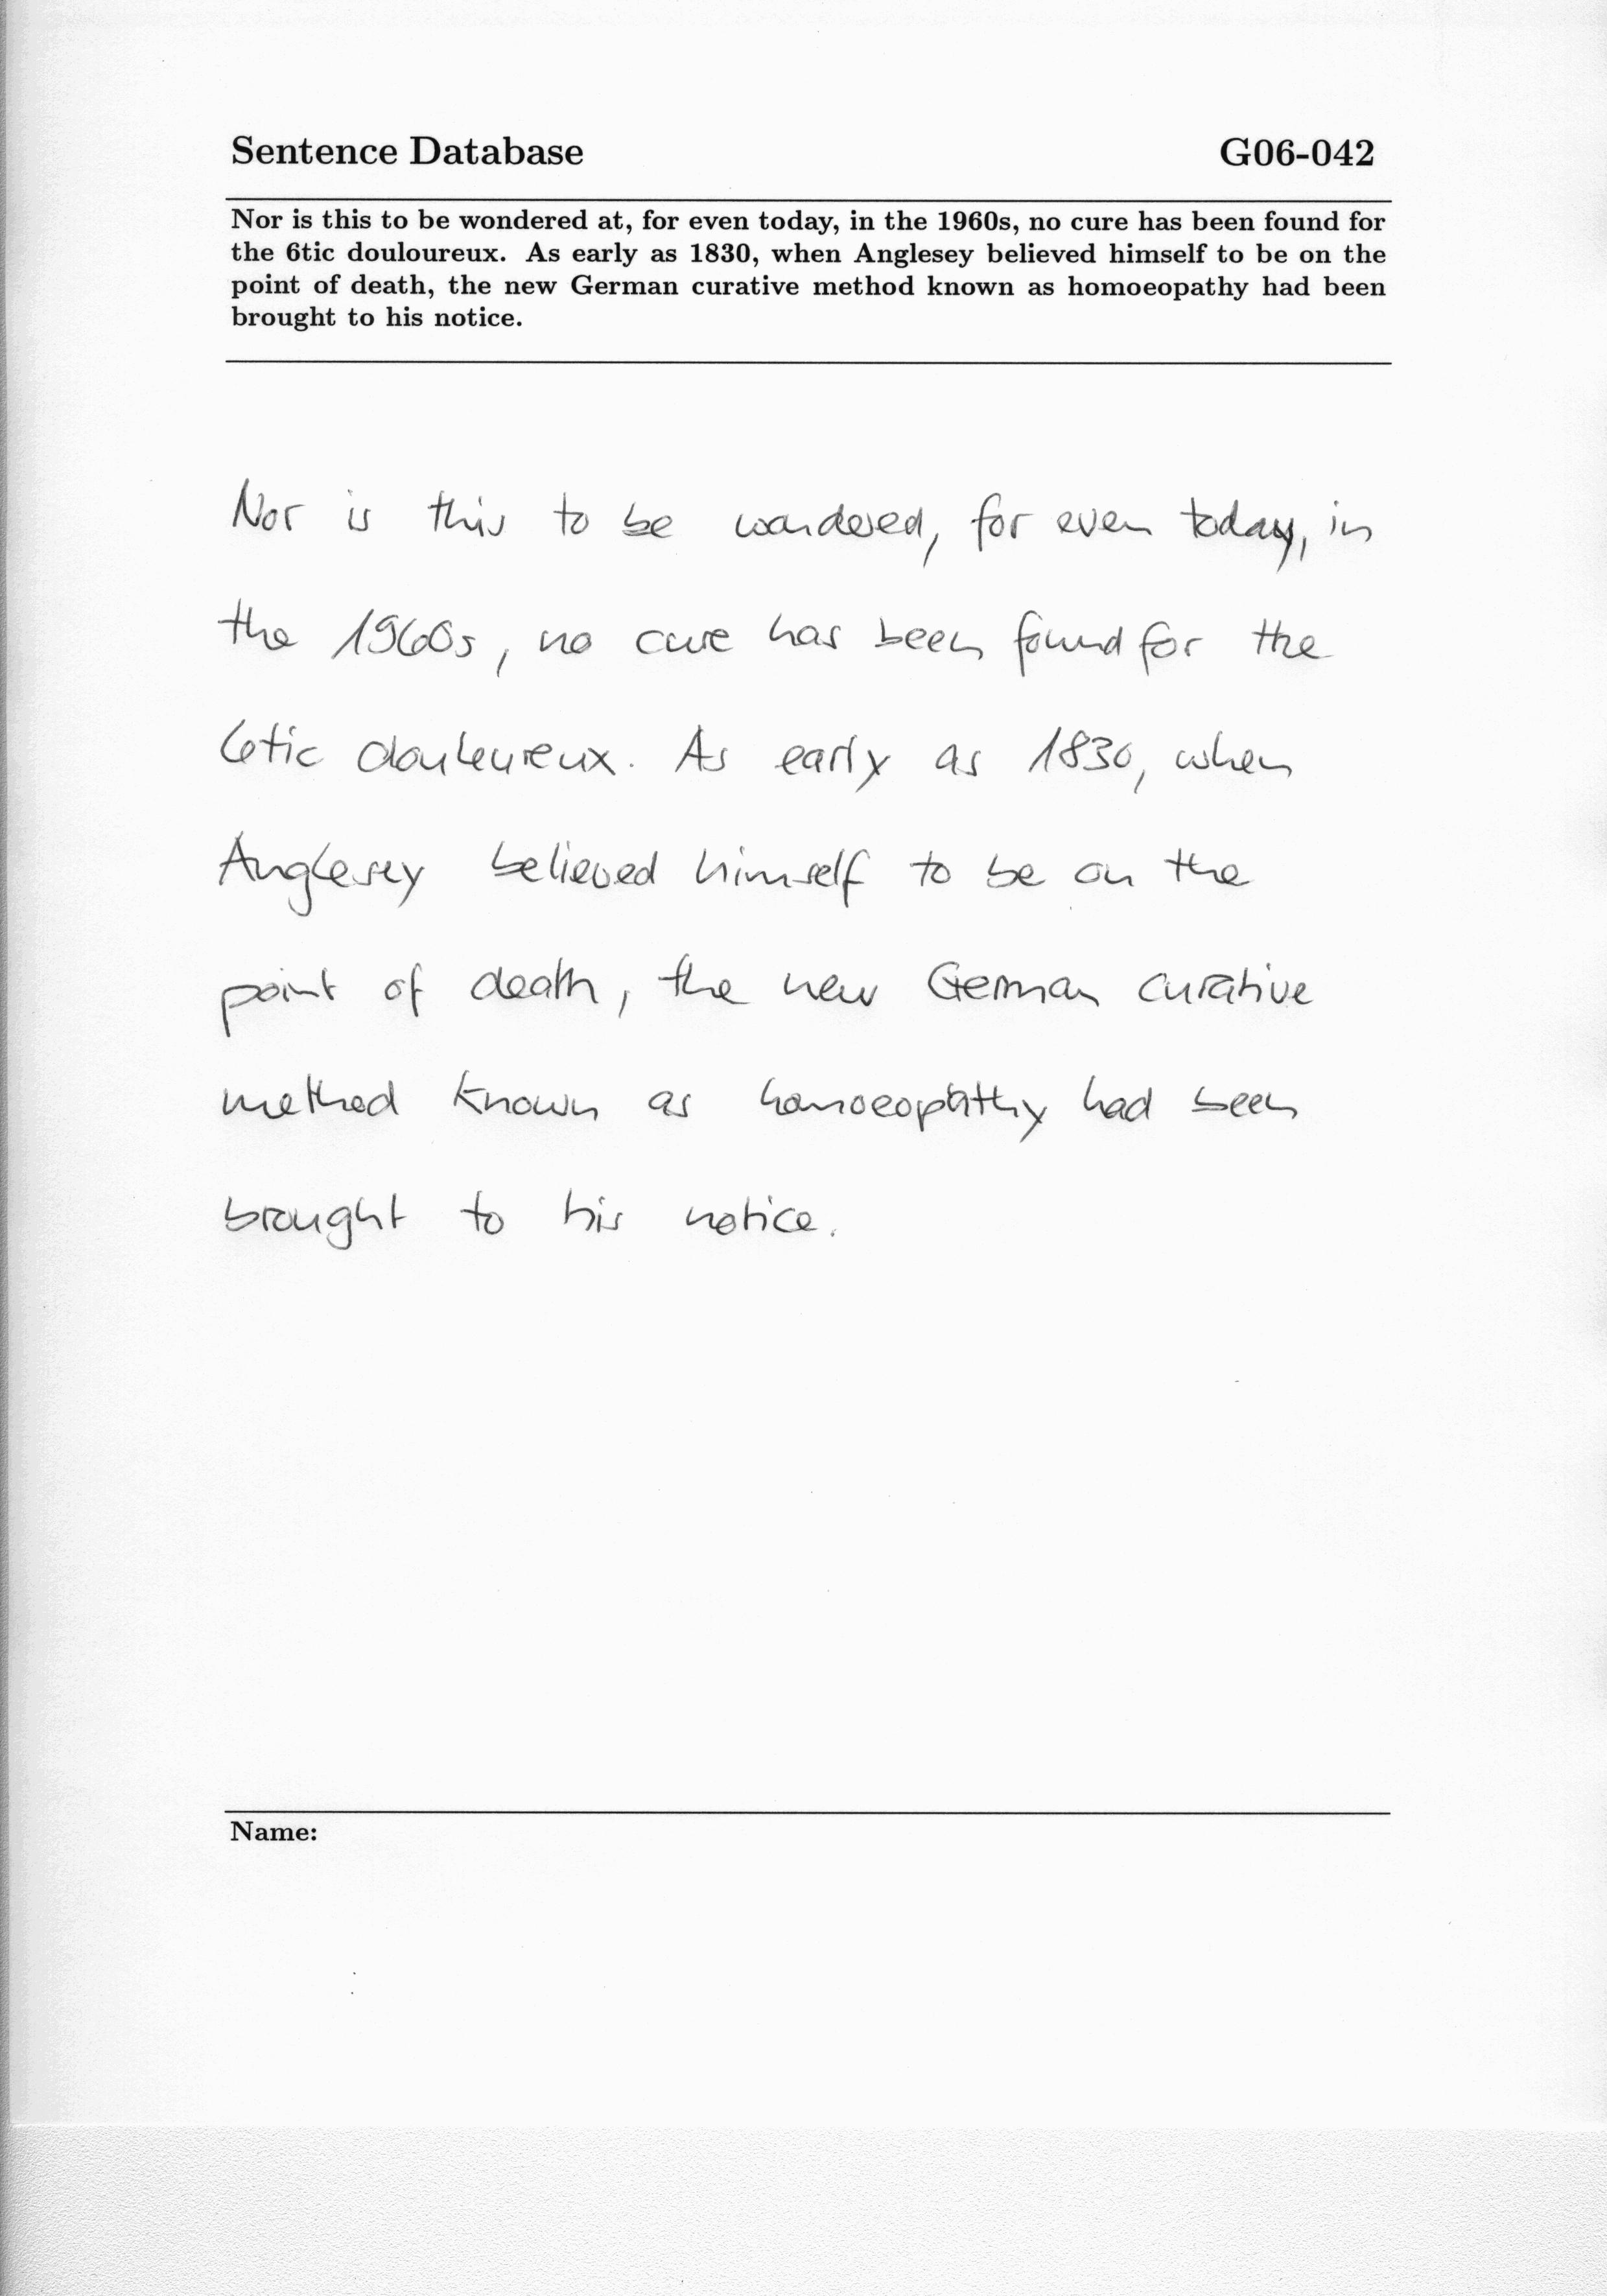 Sentence Database G06-042
Nor is this to be wondered at, for even today, in the 1960s, no cure has been found for
the 6tic douloureux. As early as 1830, when Anglesey believed himself to be on the
point of death, the new German curative method known as homoeopathy had been
brought to his notice.
Nor is this to be wondered, for even today, in
the 1960s, no cure has been found for the
6tic douleureux. As early as 1830, when
Anglesey believed himself to be on the
point of death, the new German curative
method known as homoeopathy had been
brought to his notice.
Name: